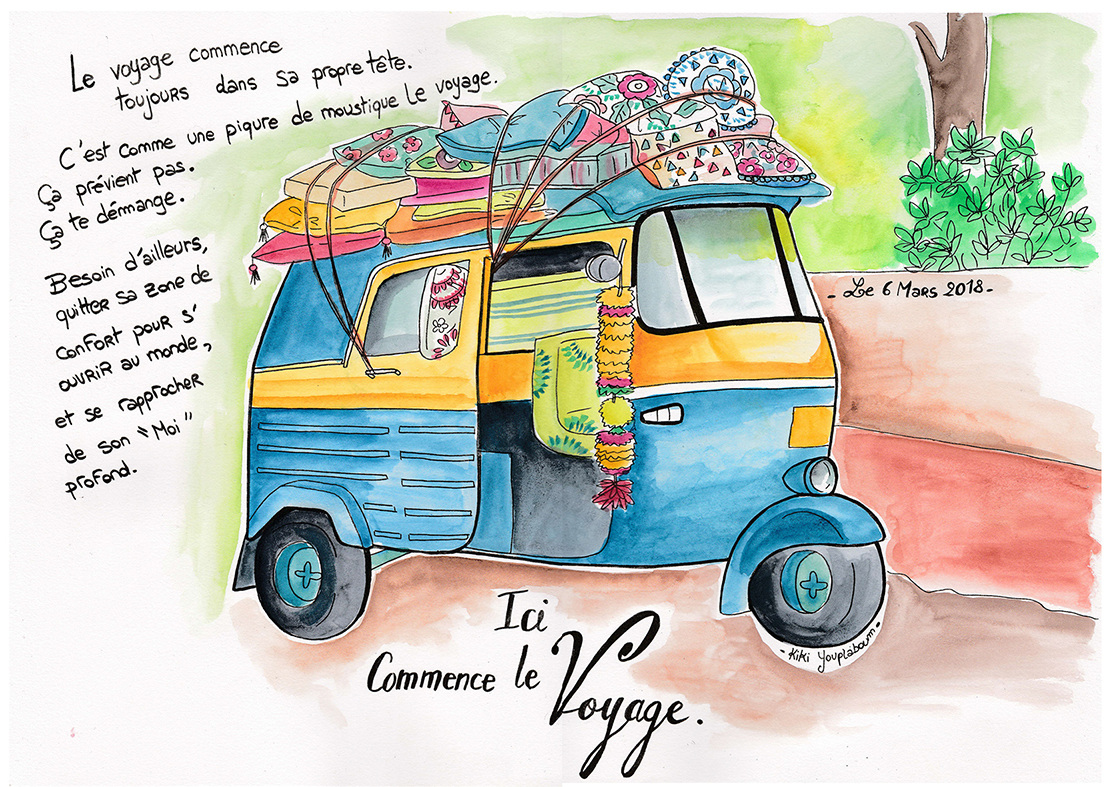 Le voyage commence
toujours dans sa propre tête.
C'est comme une piqure de moustique le voyage.
Ça prévient pas.
Ça te démange.
Besoin d'ailleurs,
quitter sa zone de
confort pour s'
ouvrir au monde,
et se rapprocher
de son "Moi"
profond.
- Le 6 Mars 2018 -
Ici
Commence le
Voyage.
- Kiki Youplaboum -